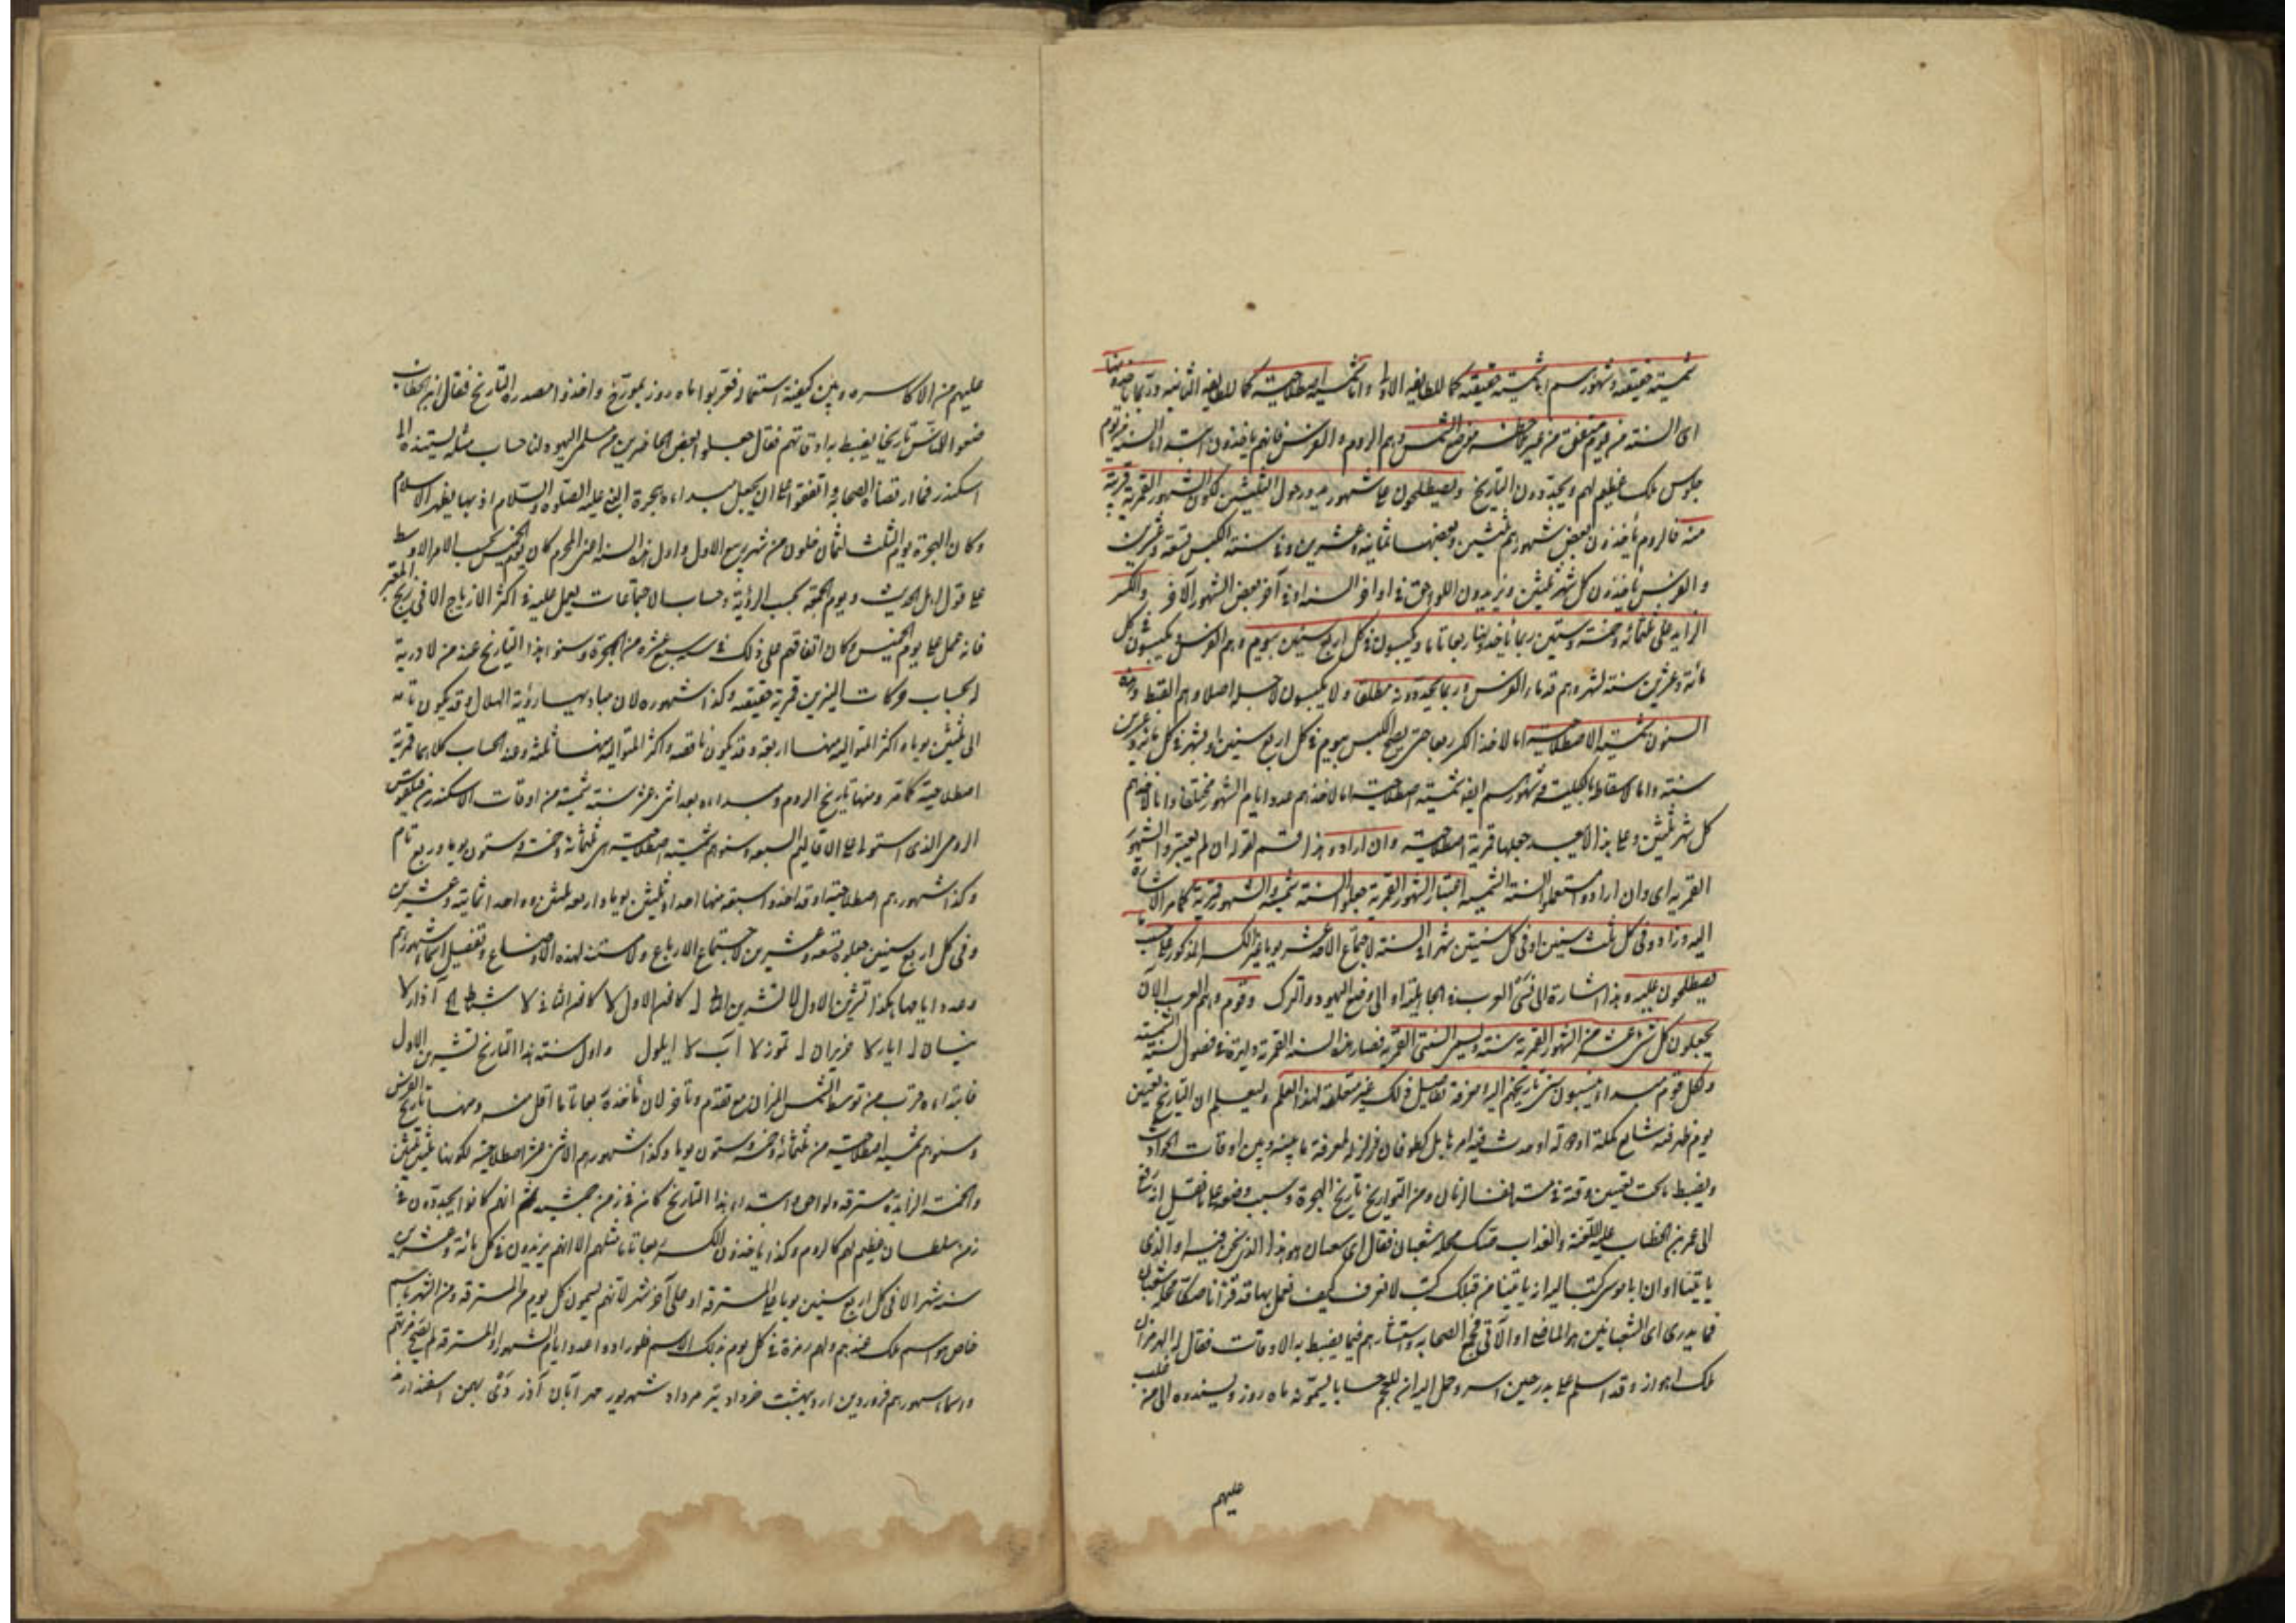 شمسية حقيقة وشهورهم اما شمسية حقيقة كما للطايفة الاولى واما شمسية اصطلاحية كما للطايفة الثانية وربما
اى السنة من يوم متفق من غير ملاحظة موضع الشمس وهم الروم والفرس فانهم ياخذون ابتداء السنة من يوم
جلوس ملك عظيم لهم ويجددون التاريخ ويصطلحون على شهور مدور حول الثلثين لكون الشهور القمرية قريبة
منه فالروم يأخذون بعض شهورهم ثلثين وبعضها ثمانية وعشرين وفى سنة الكبس تسعة وعشرين
والفرس يأخذون كل شهر ثلثين ويزيدون اللواحق فى اواخر السنة او فى آخر بعض الشهور الآخر والكسر
الزايد على ثلثمائة وخمسة وستين ربما يأخذونها ربعا تاما ويكبسون فى كل اربع سنين بيوم وهم الفرس ويكبسون كل
مائة وعشرين سنة بشهر وهم قدماء الفرس وربما يحذفونه مطلقا ولا يكبسون لاجله اصلا وهم القبط
السنون شمسية الاصطلاحية اما لاخذ الكسر ربعا حتى يصح الكبس بيوم فى كل اربع سنين او بشهر فى كل مائة وعشرين
سنة واما لاسقاطه بالكلية وشهورهم ايضا شمسية اصطلاحية اما لاخذهم عدد ايام الشهور مختلفا واما لاخذهم
كل شهر ثلثين وعلى هذا لا يبعد جعلها قمرية اصطلاحية وان ارادوا هذا قسم لقوله ان لم يعتبروا الشهور
القمرية اى وان ارادوا مستعملوا السنة الشمسية اعتبار الشهور القمرية جعلوا السنة شمسية والشهور قمرية كما مر الاشارة
اليه وزادوا فى كل ثلث سنين او فى كل سنتين شهرا على السنة لاجتماع الاحد عشر يوما مع الكسر المذكور على حسب ما
يصطلحون عليه وهذا اشارة الى نسئ العرب فى الجاهلية او الى وضع اليهود والترك وقوم وهم العرب الآن
يجعلون كل اثنى عشر من الشهور القمرية سنة وليس السنتى القمرية فصار هذه السنة القمرية دايرة فى فصول السنة الشمسية
ولكل قوم مبداء ينسبون سنى تاريخهم اليه ومعرفة تفاصيل ذلك غير متعلقة لهذا العلم وليعلم ان التاريخ تعيين
يوم ظهر فيه شايع كملة او دولة او حدث فيه امر هايل كطوفان او زلزلة لمعرفة ما بينه وبين اوقات الحوادث
ويضبط ما يجب تعيين وقته فى مستانف الزمان ومن التواريخ تاريخ الهجرة وسبب وضعه على ما نقل انه رفع
الى عمر بن الخطاب عليه اللعنة والعذاب صك محله شعبان فقال اى شعبان هو هذا الذى نحن فيه او الذى
يأتينا او ان ابا موسى كتب اليه انه يأتينا من قبلك كتب لا نعرف كيف نعمل بها قد قرأنا صكا محله شعبان
فما يدرى اى الشعبانين هو الماضى او الآتى فجمع الصحابة واستشارهم فيما يضبط به الاوقات فقال له الهرمزان
ملك اهواز وقد اسلم على يديه حين اسر وحمل اليه ان للعجم حسابا يسمونه ماه روز ويسندونه الى من غلب
عليهم
عليهم من الاكاسرة وبين كيفية استعماله فعربوا ماه روز بمورخ واخذوا مصدره التاريخ فقال ابن الخطاب
ضعوا للناس تاريخا يضبط به اوقاتهم فقال بعض الحاضرين من مسلمى اليهود لنا حساب مثله يسندونه الى
اسكندر فما ارتضاه الصحابة واتفقوا على ان يجعل مبداءه هجرة النبى عليه الصلوة والسلام اذ بها يظهر الاسلام
وكان الهجرة يوم الثلث لثمان خلون من شهر ربيع الاول واول هذه السنة اعنى المحرم كان يوم الخميس بحسب الامر الاوسط
على قول اهل الحديث ويوم الجمعة بحسب الرؤية وحساب الاجتماعات يعمل عليه فى اكثر الازياج الا فى زيج المعتبر
فانه عمل على يوم الخميس وكان اتفاقهم على ذلك فى سنة سبع عشرة من الهجرة وسنو هذا التاريخ عند من لا درية
له بحساب حركات النيرين قمرية حقيقة وكذا شهوره لان مباديها رؤية الهلال وقد يكون تامة
الى ثلثين يوما واكثر المتوالية منها اربعة وقد يكون ناقصة واكثر المتوالية منها ثلثة وعند الحساب كلاهما قمرية
اصطلاحية كما مر ومنها تاريخ الروم ومبداءه بعد اثنى عشر سنة شمسية من اوقات الاسكندر بن فيلقوس
الرومى الذى استولى على الاقاليم السبعة وسنوهم شمسية اصطلاحية هى ثلثمائة وخمسة وستون يوما وربع تام
وكذا شهورهم اصطلاحية وقد اخذوا سبعة منها احدا وثلثين يوما واربعة ثلثين وواحدا ثمانية وعشرين
وفى كل اربع سنين جعلوه تسعة وعشرين لاجتماع الارباع ولا مستند لهذه الاوضاع وتفصيل اسماء شهورهم
وعدد ايامها هكذا تشرين الاول لا تشرين الثانى ل كانون الاول لا كانون الثانى لا شباط كح آذار لا
نيسان ل ايار لا حزيران ل تموز لا آب لا ايلول واول سنة هذا التاريخ تشرين الاول
فابتداءه قريب من توسط الشمس الميزان مع تقدم وتأخر لان مأخذه ربعا تاما اقل منه ومنها تاريخ الفرس
وسنوهم شمسية اصطلاحية من ثلثمائة وخمسة وستون يوما وكذا شهورهم الاثنى عشر اصطلاحية لكونها ثلثين ثلثين
والخمسة الزايدة مسترقة ولواحق وابتداء هذا التاريخ كان فى زمن جمشيد ثم انهم كانوا يجددون فى
زمن سلطان عظيم لهم كالروم وكذا يأخذون الكسر ربعا تاما مثلهم الا انهم يزيدون فى كل مائة وعشرين
سنة شهرا لا فى كل اربع سنين يوما على المسترقة او على آخر شهر لانهم يسمون كل يوم من المسترقة ومن الشهر باسم
خاص هو اسم ملك عندهم ولهم زمزمة فى كل يوم بذلك الاسم فلو زادوا عدد ايام الشهر او المسترقة لم يصح زمزمتهم
واسماء شهورهم فروردين ارديبهشت خرداد تير مرداد شهريور مهر آبان آذر دى بهمن اسفندارمذ